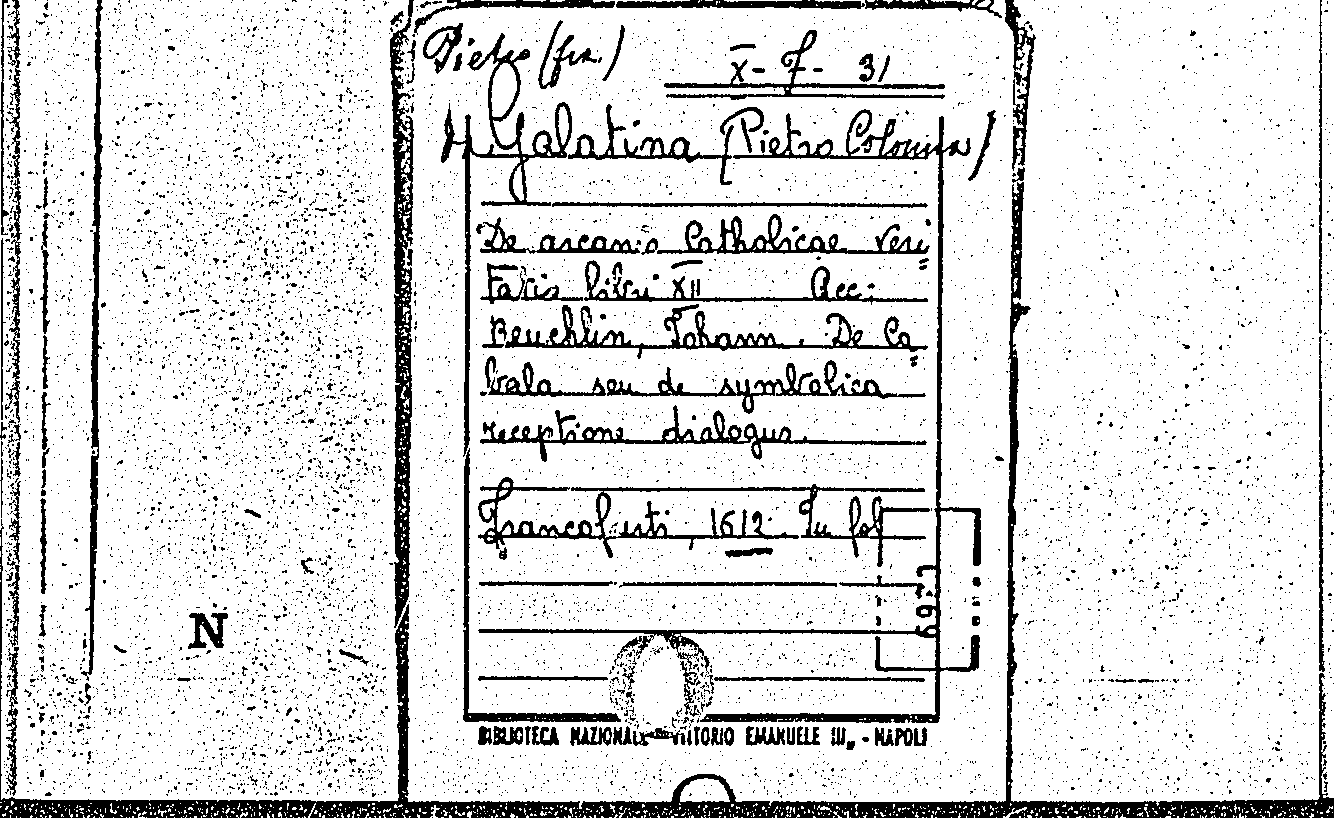 Pietro (fra.)
X - 7 - 31
Galatina (Pietro Colonna)
De arcanis Catholicae veri
tatis libri XII Acc:
Reuchlin, Johann. De Ca
bala seu de symbolica
receptione dialogus.
Francofurti, 1612. In fol
N
BIBLIOTECA NAZIONALE VITTORIO EMANUELE III„ - NAPOLI